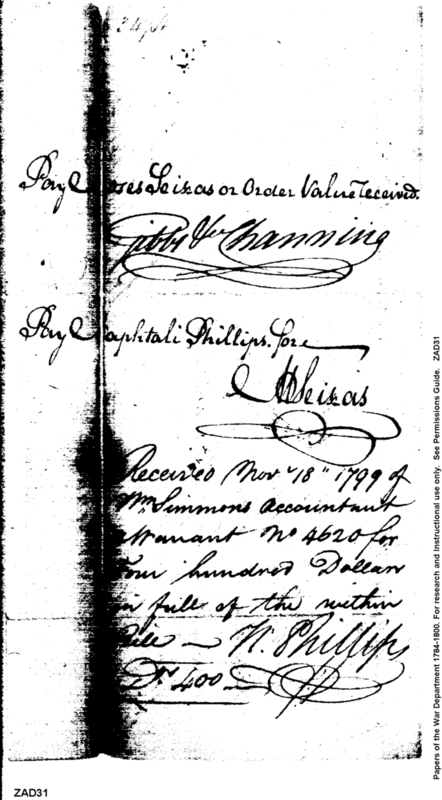 Pay Moses Seixas or Order Value received.
Gibbs & Channing
Pay Naphtali Phillips. for
MSeixas
Received Nov 18" 1799 of
Wm Simmons Accountant
Warrant No 4620 for
Four hundred Dollars
in full of the within
Bill — N. Phillips
Drs 400
Papers of the War Department 1784-1800. For research and Instructional use only. See Permissions Guide. ZAD31
ZAD31